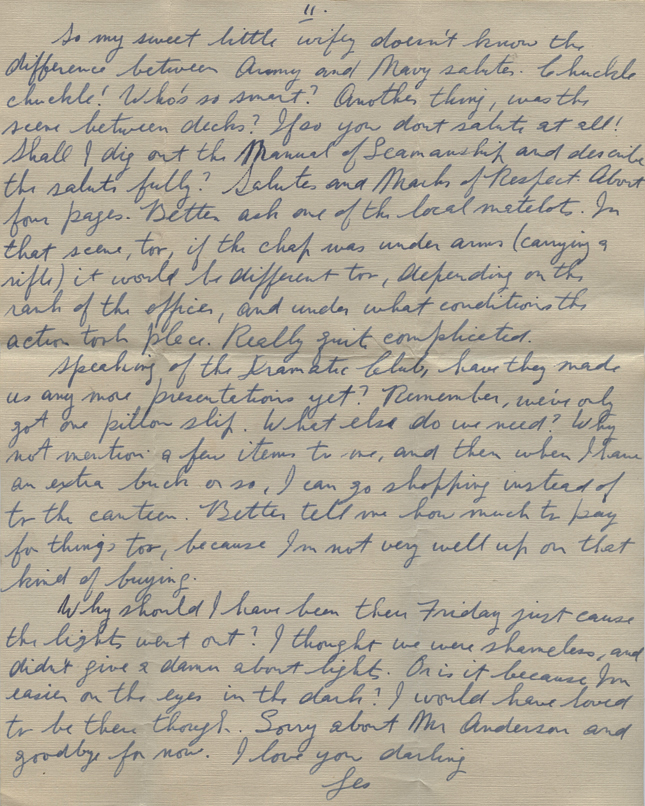 11.
So my sweet little wifey doesn't know the
difference between Army and Navy salutes. Chuckle
chuckle! Who's so smart? Another thing, was the
scene between decks? If so you dont salute at all!
Shall I dig out the Manual of Seamanship and describe
the salute fully? Salutes and Marks of Respect. About
four pages. Better ask one of the local matelots. In
that scene, too, if the chap was under arms (carrying a
rifle) it would be different too, depending on the
rank of the officer, and under what conditions the
action took place. Really quite complicated.
Speaking of the Dramatic Club, have they made
us any more presentations yet? Remember, we've only
got one pillow slip. What else do we need? Why
not mention a few items to me, and then when I have
an extra buck or so, I can go shopping instead of
to the canteen. Better tell me how much to pay
for things too, because I'm not very well up on that
kind of buying.
Why should I have been there Friday just cause
the lights went out? I thought we were shameless, and
didn't give a damn about lights. Or is it because I'm
easier on the eyes in the dark? I would have loved
to be there though. Sorry about Mr Anderson and
goodbye for now. I love you darling
Les